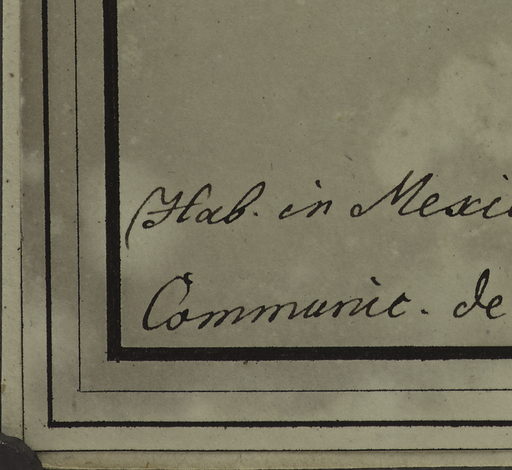 (Hab. in Mexi
Communic. de